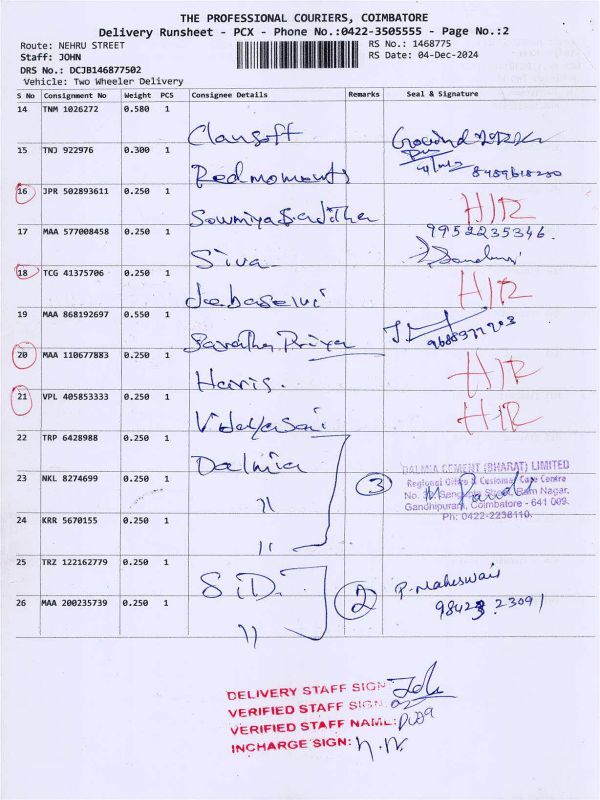 THE PROFESSIONAL COURIERS, COIMBATORE
Delivery Runsheet - PCX - Phone No.:0422-3505555 - Page No.:2
Route: NEHRU STREET RS No.: 1468775
Staff: JOHN RS Date: 04-Dec-2024
DRS No.: DCJB146877502
Vehicle: Two Wheeler Delivery
S No Consignment No Weight PCS Consignee Details Remarks Seal & Signature
14 TNM 1026272 0.580 1 Clansoft Govind
15 TNJ 922976 0.300 1 Redmoments 8489618280
16 JPR 502893611 0.250 1 Sowmiya Saditha H/R
17 MAA 577008458 0.250 1 Siva 9952235346
18 TCG 41375706 0.250 1 Jebaselvi H/R
19 MAA 868192697 0.550 1 Saratha Priya 9688377203
20 MAA 110677883 0.250 1 Haris. H/R
21 VPL 405853333 0.250 1 Vidayasai H/R
22 TRP 6428988 0.250 1 Dalmia
DALMIA CEMENT (BHARAT) LIMITED
Regional Office & Customer Care Centre
23 NKL 8274699 0.250 1 〃 3 No. Street, Ram Nagar,
Gandhipuram, Coimbatore - 641 009.
Ph: 0422-2236110.
24 KRR 5670155 0.250 1 〃
25 TRZ 122162779 0.250 1 S.D. P. Maheswari
26 MAA 200235739 0.250 1 〃 2 98423 23091
DELIVERY STAFF SIGN
VERIFIED STAFF SIGN:
VERIFIED STAFF NAME:
INCHARGE SIGN: